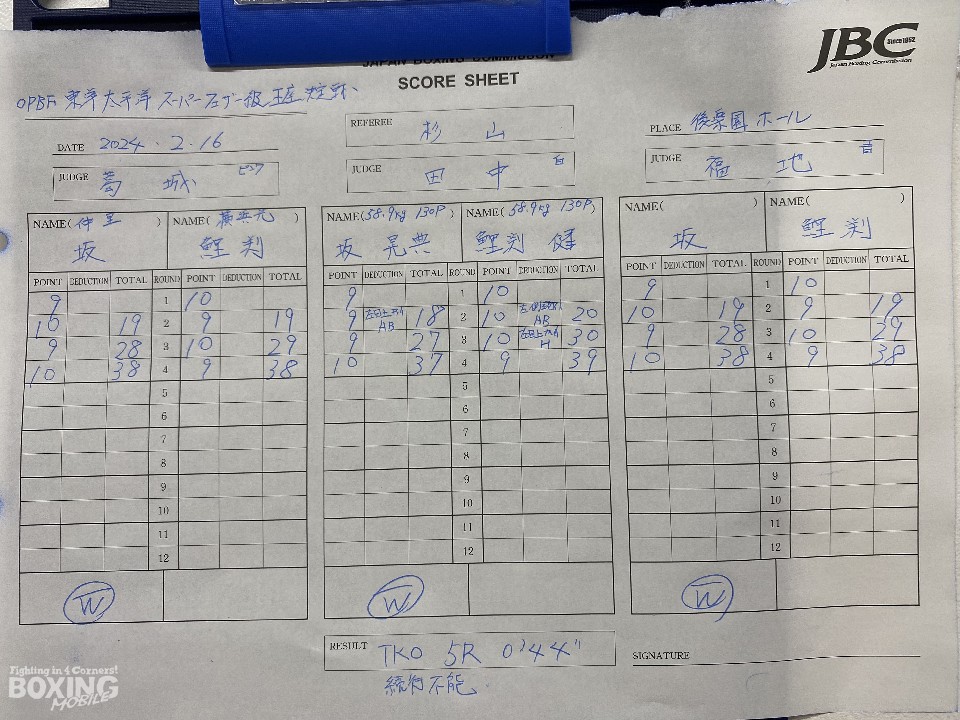 JBC
Since 1952
Japan Boxing Commission
JAPAN BOXING COMMISSION
SCORE SHEET
OPBF 東洋太平洋 スーパーフェザー級 王座
DATE 2024.2.16
REFEREE 杉山
PLACE 後楽園ホール
JUDGE 葛城 ピンク
JUDGE 田中 白
JUDGE 福地 青
NAME(仲里) NAME(横浜光)
坂 鯉渕
NAME(58.9kg 130P) NAME(58.9kg 130P)
坂 晃典 鯉渕 健
NAME( ) NAME( )
坂 鯉渕
POINT DEDUCTION TOTAL ROUND POINT DEDUCTION TOTAL
9 1 10
10 19 2 9 19
9 28 3 10 29
10 38 4 9 38
5
6
7
8
9
10
11
12
W
POINT DEDUCTION TOTAL ROUND POINT DEDUCTION TOTAL
9 1 10
9 左目上 AB 18 2 10 AB 20
9 27 3 10 左目上 30
10 37 4 9 39
5
6
7
8
9
10
11
12
W
POINT DEDUCTION TOTAL ROUND POINT DEDUCTION TOTAL
9 1 10
10 19 2 9 19
9 28 3 10 29
10 38 4 9 38
5
6
7
8
9
10
11
12
W
RESULT TKO 5R 0'44"
続行不能
SIGNATURE
Fighting in 4 Corners!
BOXING
MOBILE